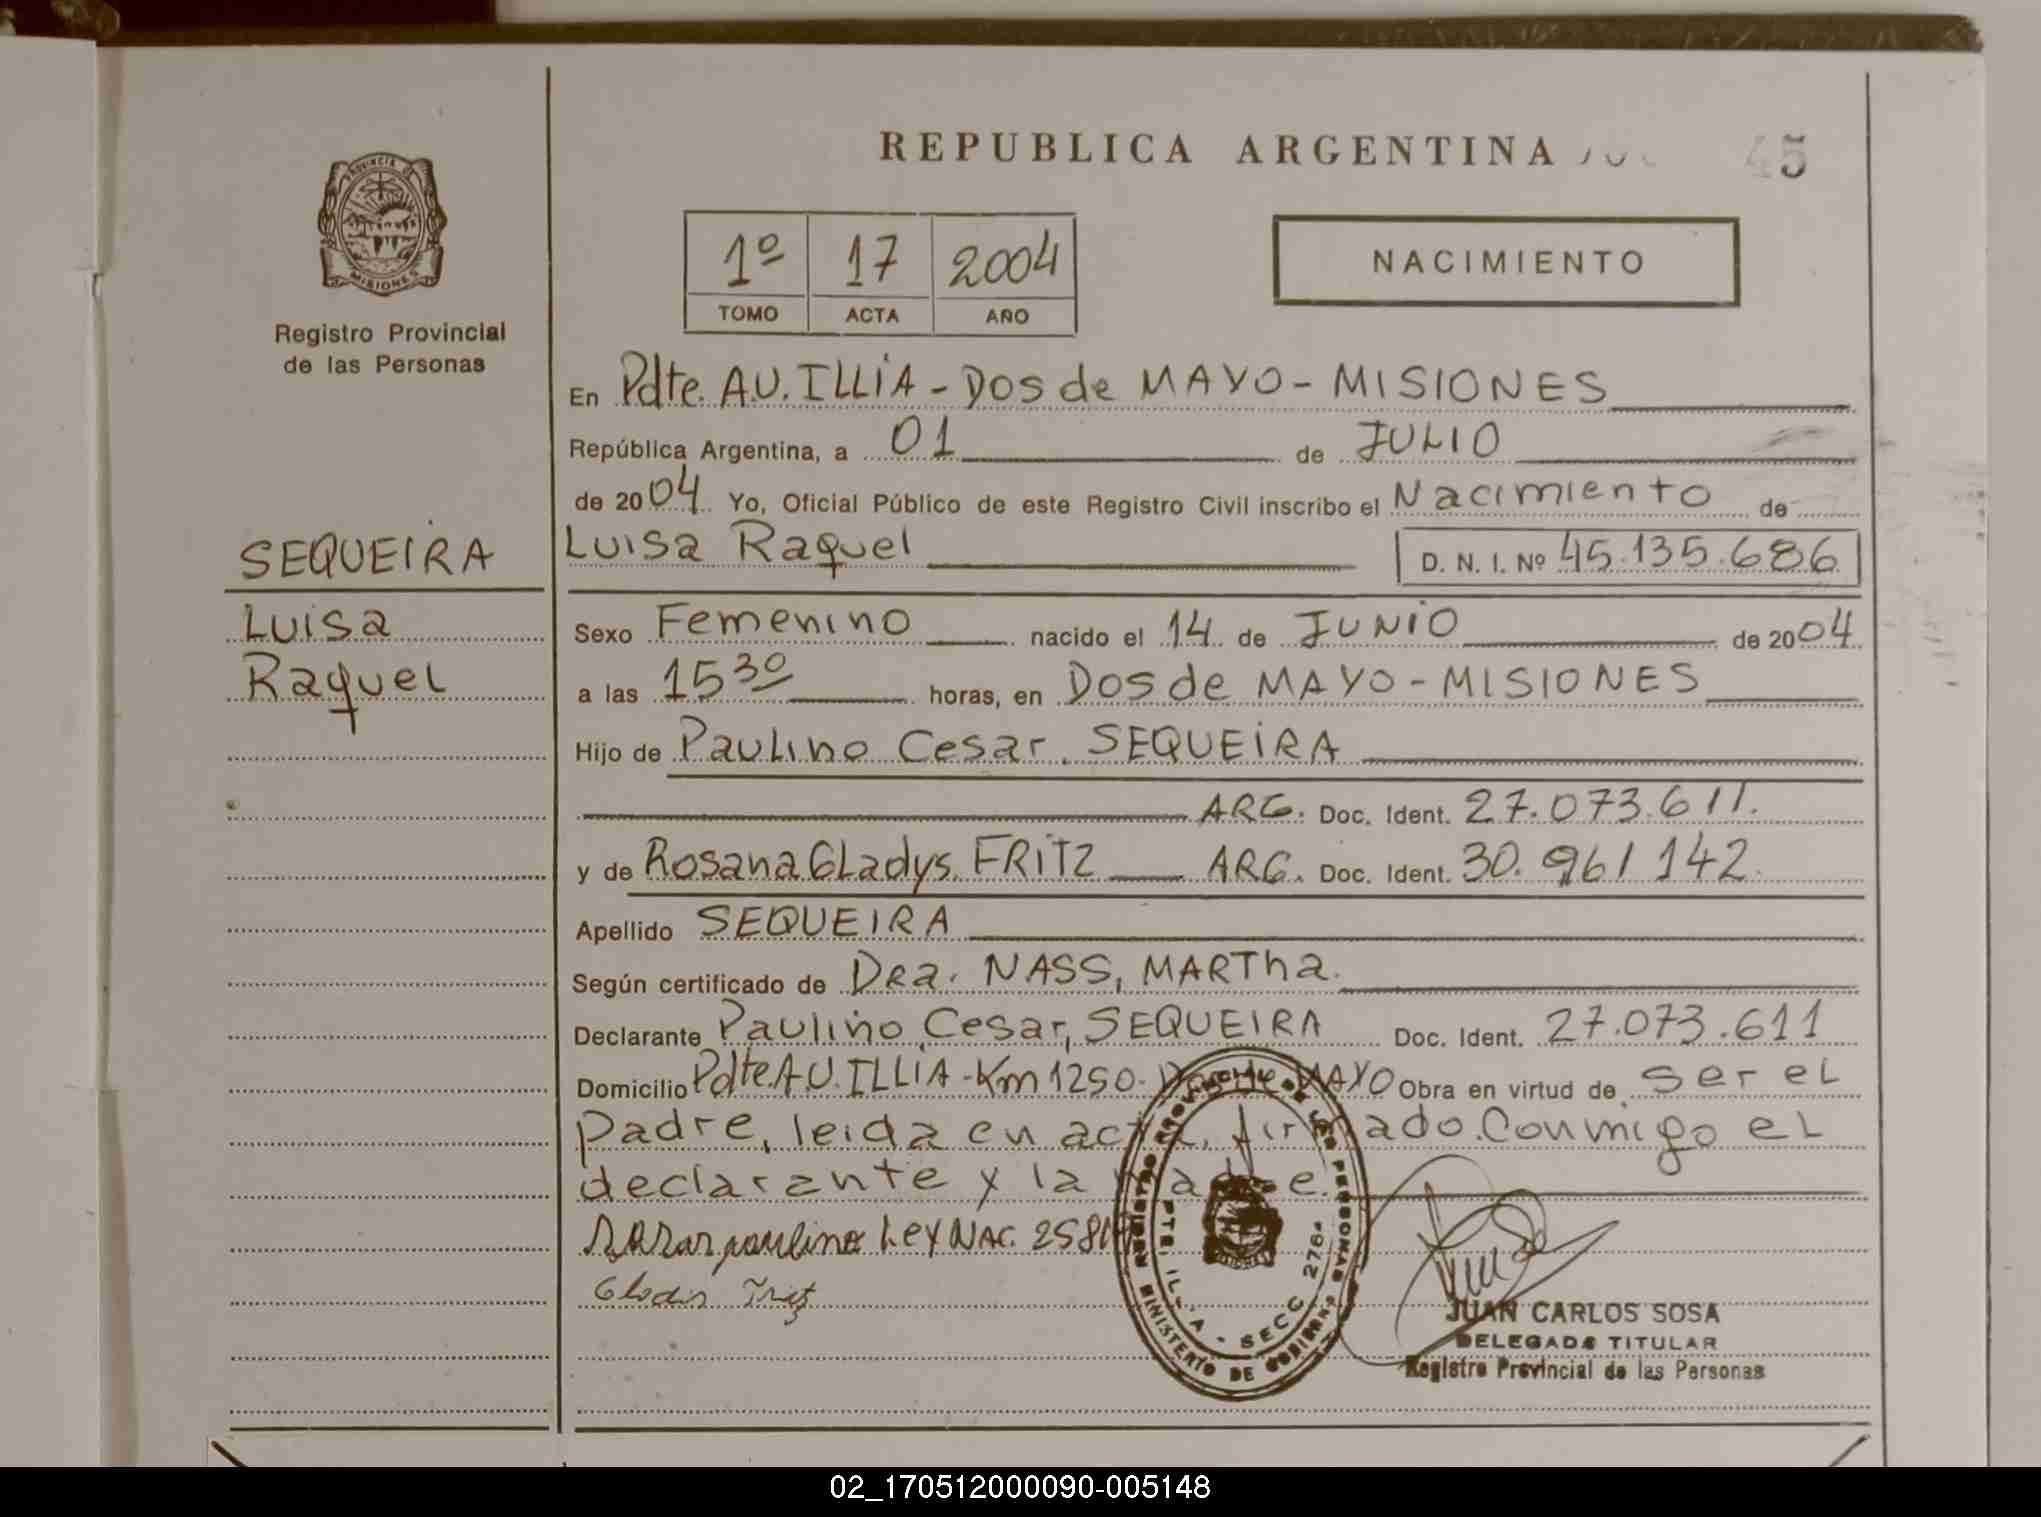 REPUBLICA ARGENTINA
45
PROVINCIA DE
MISIONES
Registro Provincial
de las Personas
1º 17 2004
TOMO ACTA AÑO
NACIMIENTO
En Pdte. A.U. ILLIA - DOS de MAYO - MISIONES
República Argentina, a 01 de JULIO
de 2004 Yo, Oficial Público de este Registro Civil inscribo el Nacimiento de
SEQUEIRA
Luisa Raquel D. N. I. Nº 45.135.686
Luisa
Raquel
Sexo Femenino nacido el 14 de JUNIO de 2004
a las 15 30 horas, en DOS de MAYO - MISIONES
Hijo de Paulino Cesar, SEQUEIRA
ARG. Doc. Ident. 27.073.611.
y de Rosana Gladys. FRITZ ARG. Doc. Ident. 30.961142.
Apellido SEQUEIRA
Según certificado de Dra. NASS, MARTha.
Declarante Paulino, Cesar, SEQUEIRA Doc. Ident. 27.073.611
Domicilio Pdte A.U. ILLIA - Km 1250 - Dos de MAYO Obra en virtud de ser el
padre, leida en acta, firmado conmigo el
declarante y la madre.
paulino Ley NAC.
REGISTRO PROVINCIAL DE LAS PERSONAS
MINISTERIO DE GOBIERNO
SECC 276ª
JUAN CARLOS SOSA
DELEGADO TITULAR
Registro Provincial de las Personas
02_170512000090-005148